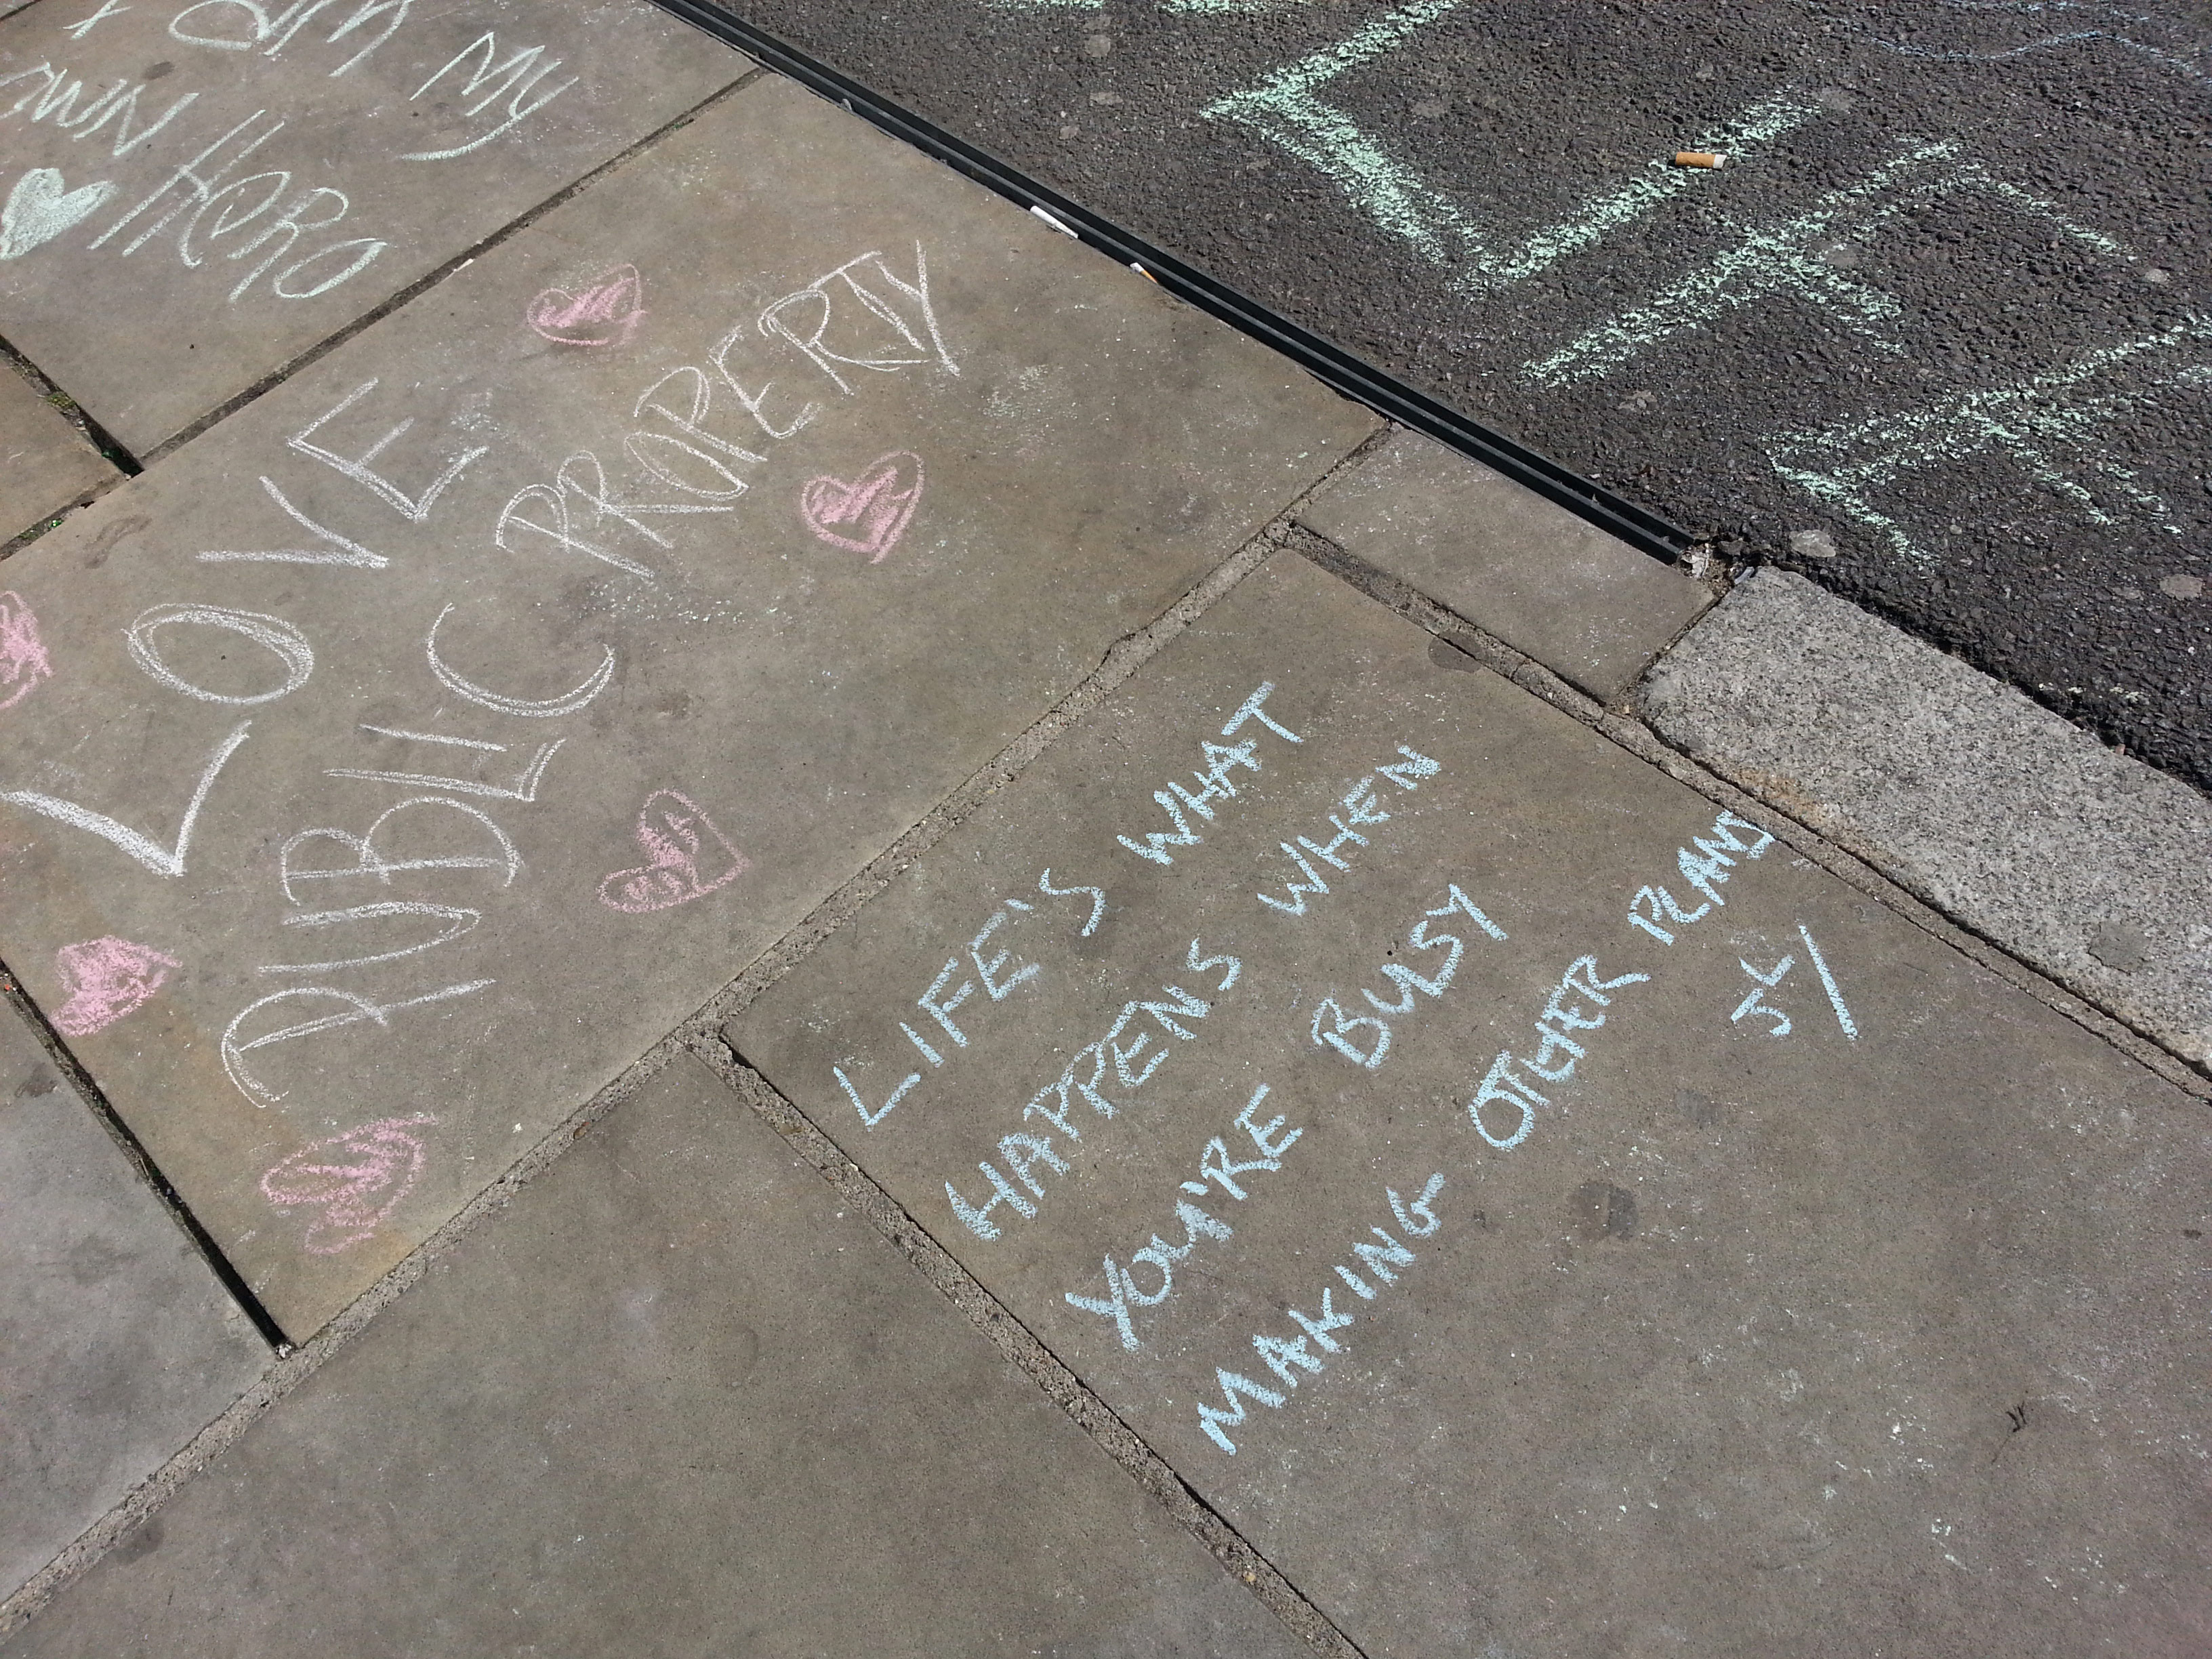 I AM MY
OWN HERO
LOVE
PUBLIC PROPERTY
LIFE'S WHAT
HAPPENS WHEN
YOU'RE BUSY
MAKING OTHER PLANS